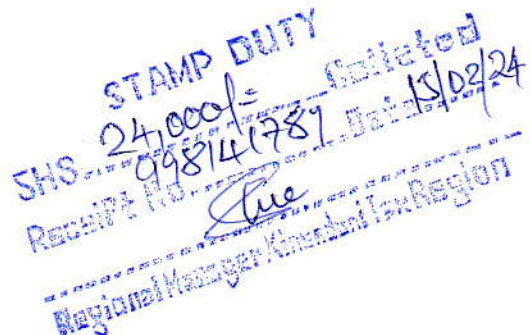 STAMP DUTY
SHS. 24,000/= Collected
Receipt No. 998141789 Date 15/02/24
Regional Manager Kinondoni Tax Region